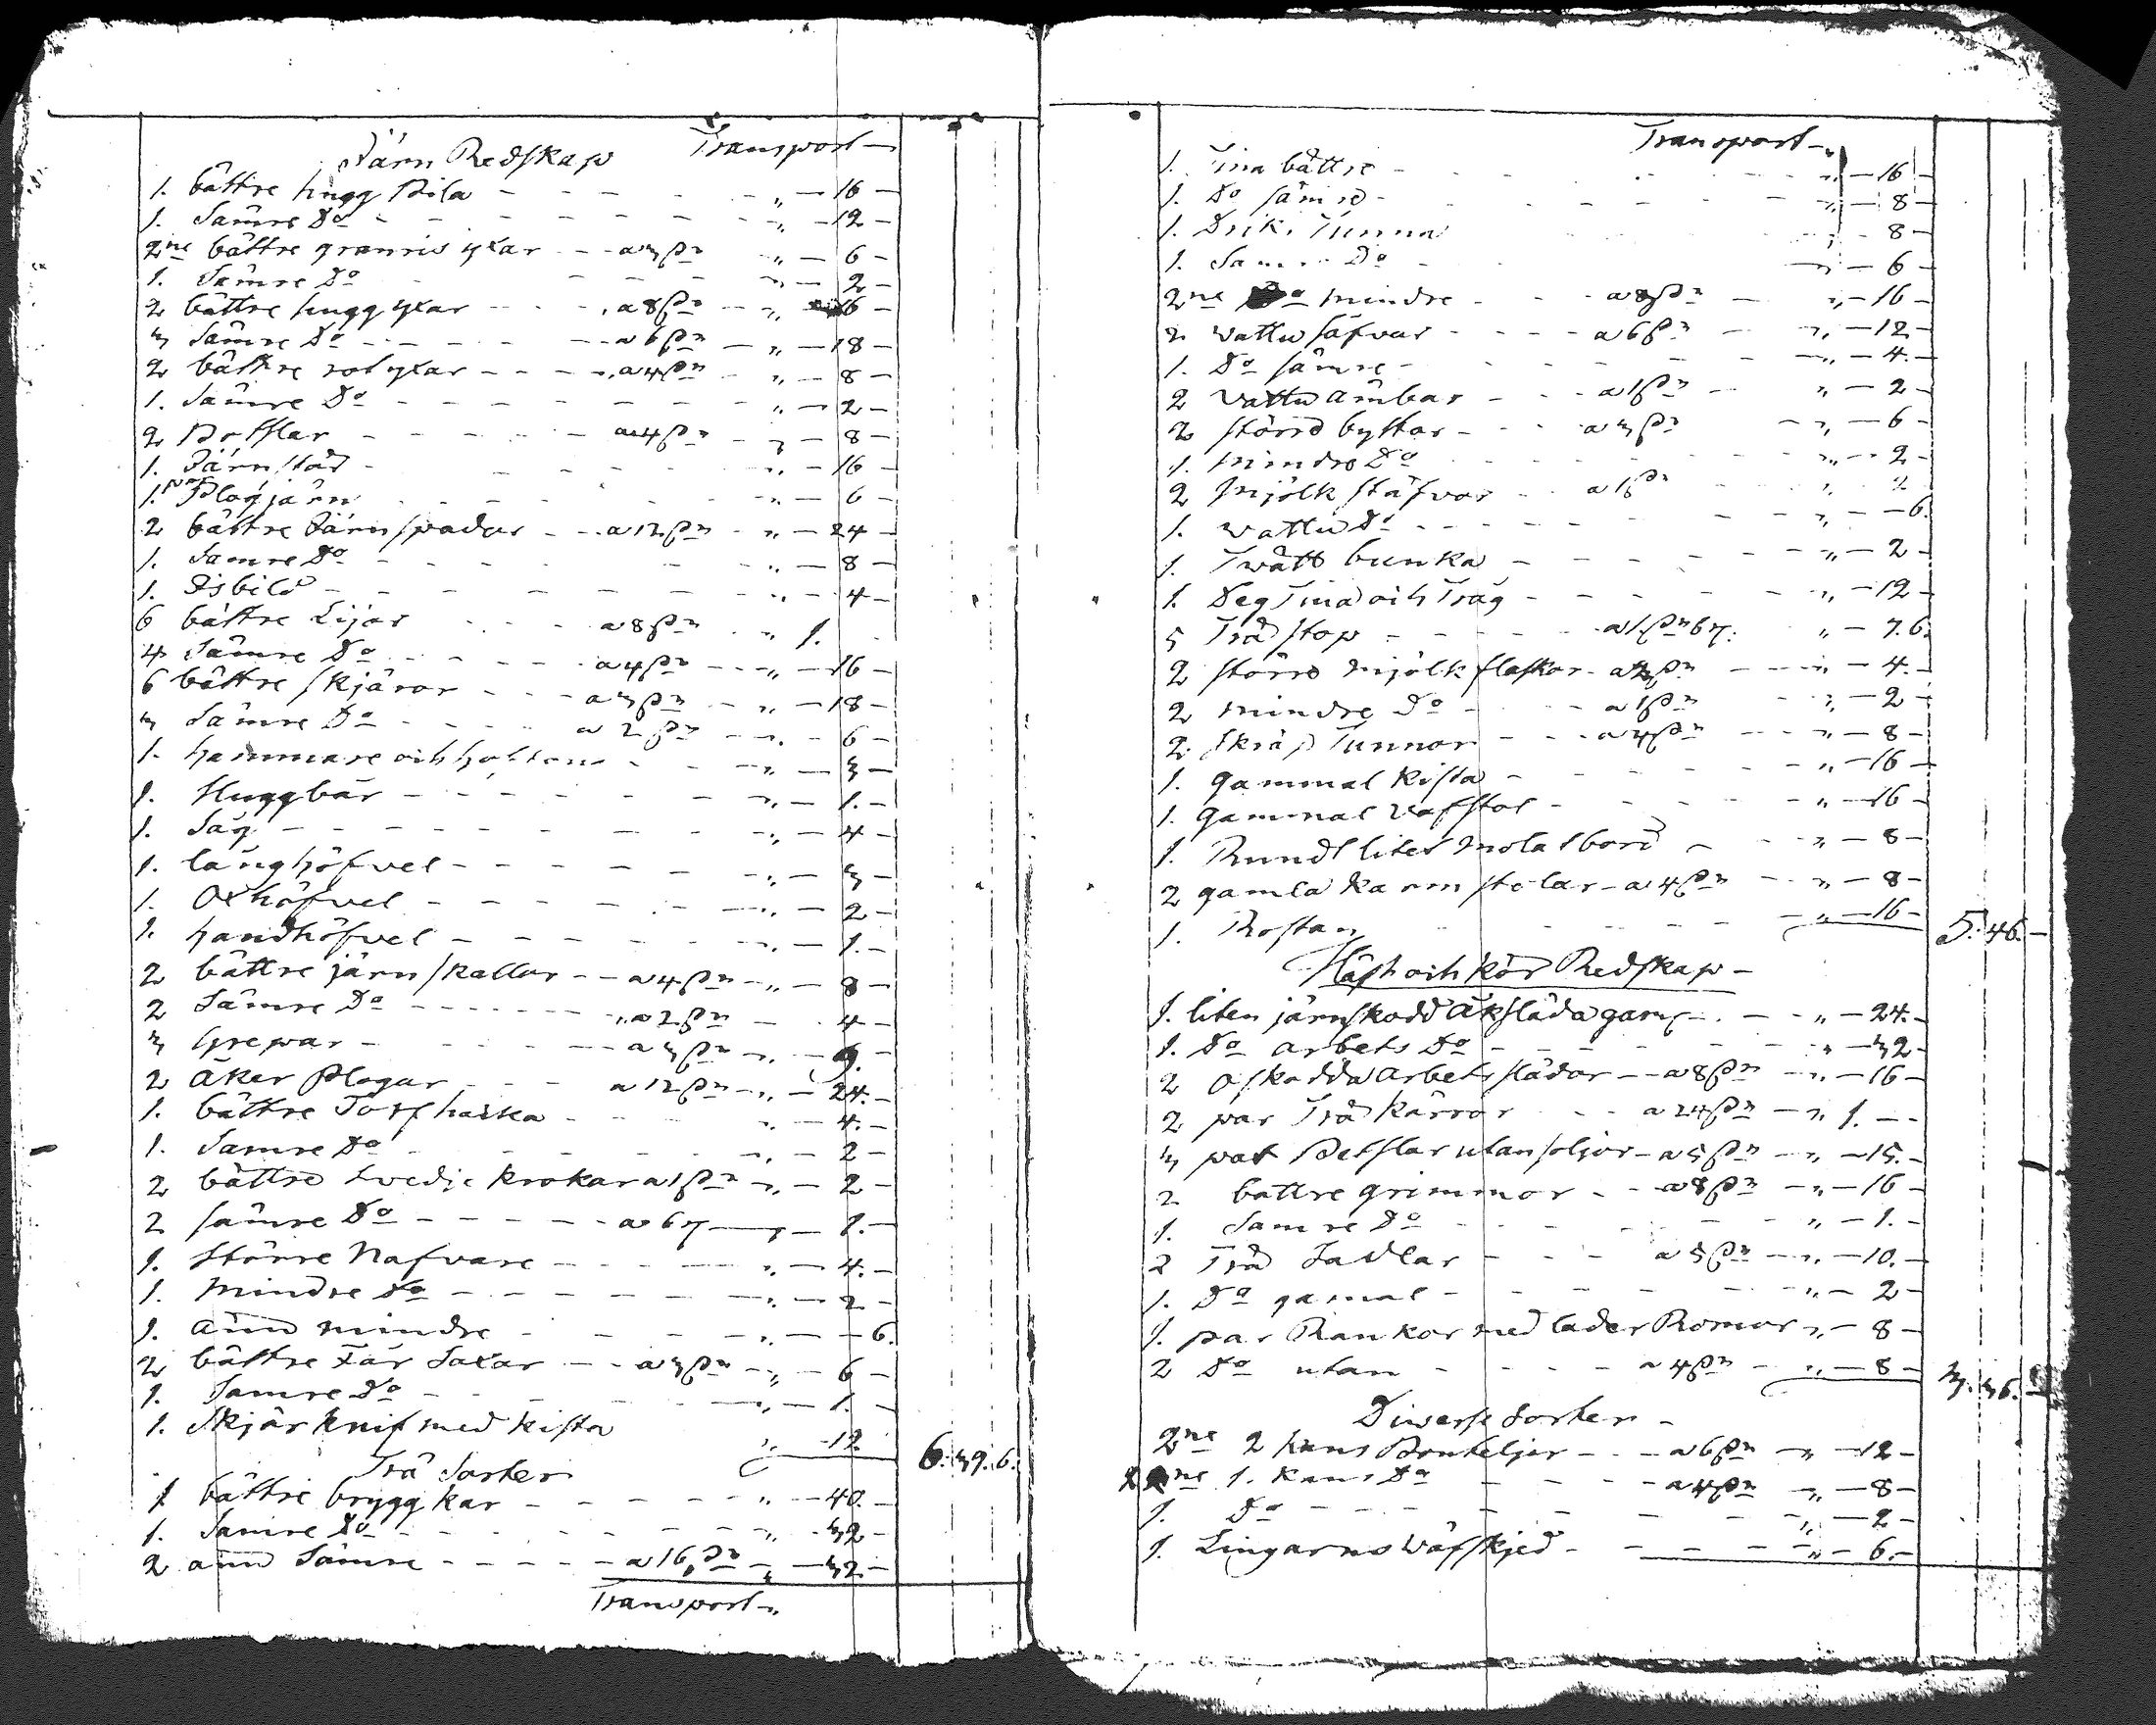 Järn Redskap Transport
1. bättre hugg Bila - - - - - - „ - 16 -
1. Sämre Do - - - - - - „ - 12 -
2ne bättre granris yxar - - a 3 ßr „ - 6 -
1. Sämre Do - - - „ - 2 -
2 bättre hugg yxar - - - a 8 ßr - „ - 16 -
3 Sämre Do - - - - - a 6 ßr - „ - 18 -
2 bättre rot yxar - - - a 4 ßr - „ - 8 -
1. Sämre Do - - - - - - „ - 2 -
2 Bottlar - - - - - a 4 ßr - „ - 8 -
1. Järnstör - - - - - „ - 16 -
1. par Plogjärn - - - - - „ - 6 -
2 bättre Järnspadar - - a 12 ßr - „ - 24 -
1. Samre Do - - - - - „ - 8 -
1. Isbila - - - - - - „ - 4 -
6 bättre Lijar - - - a 8 ßr - „ 1. -
4 Sämre Do - - - - a 4 ßr - - „ - 16 -
6 bättre skjäror - - - a 3 ßr - „ - 18 -
3 Sämre Do - - - - a 2 ßr - „ - 6 -
1. hammare och - - „ - 3 -
1. Huggbär - - - - - - „ - 1. -
1. Såg - - - - - - - „ - 4 -
1. långhöfvel - - - - - - „ - 3 -
1. Oxhöfvel - - - - - - „ - 2 -
1. handhöfvel - - - - - - „ - 1. -
2 bättre järnskallar - - a 4 ßr - „ - 8 -
2 Sämre Do - - - - - „ a 2 ßr - 4 -
3 Grepar - - - - - a 3 ßr - „ 9. -
2 åker Plogar - - - a 12 ßr - „ - 24. -
1. bättre Torfhacka - - - „ - 4. -
1. Samre Do - - - - - „ - 2 -
2 bättre Svedje krokar a 1 ßr - „ - 2 -
2 sämre Do - - - - - a 6 r - „ - 1. -
1. större Nafvare - - - - „ - 4. -
1. Mindre Do - - - - - - „ - 2 -
1. ännu mindre - - - - „ - - 6.
2 bättre Får Saxar - - a 3 ßr - „ - 6 -
1. Samre Do - - - - - „ - 1. -
1. Skjärknif med kista „ - 12. 6. 39. 6.
Trä Sorter
1 bättre bryggkar - - - - - „ - 40. -
1. Samre Do - - - - - - „ - 32 -
2 ännu Sämre - - - - - a 16 ßr - „ - 32 -
Transport „
Transport „
1. Tina bättre - - - - - „ - 16 -
1. Do sämre - - - - - - „ - 8 -
1. Driks Tunna - - - „ 8 -
1. Samre Do - - „ - 6 -
2ne Do mindre - - - a 8 ßr - „ - 16 -
2 vattu såfvar - - - - a 6 ßr - „ - 12 -
1. Do sämre - - - - - - „ - 4. -
2 vattu ämbar - - - a 1 ßr - „ - 2 -
2 större byttor - - - a 3 ßr - „ - 6 -
1. mindre Do - - - - - „ - 2 -
2 Mjölk stäfvor - - a 1 ßr - - „ - 2
1. vattu Do - - - - - - „ - - 6.
1. Twätt bunka - - - - - „ - 2 -
1. Deg Tina och Tråg - - - - „ - 12 -
5 Trä stop - - - - - a 1 ßr 6 r. „ - 7. 6.
2 större mjölk flaskor - a 2 ßr - - „ - 4. -
2 mindre Do - - - - a 1 ßr - - „ - 2 -
2. skräp Tunnor - - - a 4 ßr - - „ - 8 -
1. gammal Kista - - - - - „ - 16 -
1. gammal Väfstol - - - - - „ - 16 -
1. Rundt litet målat bord - - „ - 8 -
2 gamla karmstolar - a 4 ßr - „ - 8 -
1. - - - - - „ - 16 - 5. 46. -
Häst och kör Redskap -
1. liten järnskodd åksläda gam: - - „ - 24. -
1. Do arbets Do - - - - - „ - 32 -
2 oskodda arbetsslädar - - a 8 ßr - „ - 16 -
2 par Trä kärror - - a 24 ßr - „ 1. - -
3 par Betslar utan söljor - a 5 ßr - „ - 15. -
2 bättre grimmor - - a 8 ßr - „ - 16 -
1. Samre Do - - - - - „ - 1. -
2 Trä Sadlar - - - a 5 ßr - „ - 10. -
1. Do gamal - - - - - „ - 2 -
1. par Rankor med läder Romor „ - 8 -
2 Do utan - - - - a 4 ßr - „ - 8 - 3. 36. -
Diverse Sorter -
2ne 2 kans Bouteljer - - a 6 ßr - „ - 12 -
2ne 1. kans Do - - - a 4 ßr - „ - 8 -
1. Do - - - - - - „ - 2 -
1. Lingarns Väfskjed - - - - „ - 6. -